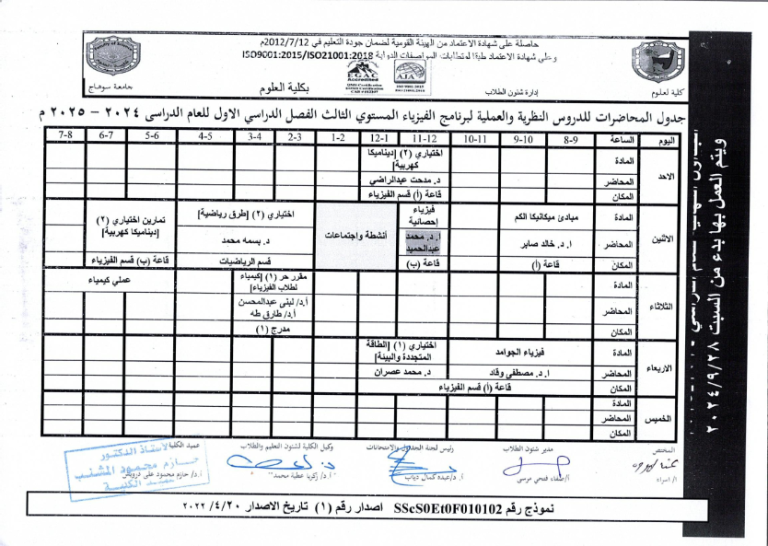 حاصلة على شهادة الاعتماد من الهيئة القومية لضمان جودة التعليم في 2012/7/12م
وعلى شهادة الاعتماد طبقا لمتطلبات المواصفات الدولية ISO9001:2015/ISO21001:2018
EGAC
AJA
كلية العلوم
إدارة شئون الطلاب
بكلية العلوم
جامعة سوهاج
جدول المحاضرات للدروس النظرية والعملية لبرنامج الفيزياء المستوي الثالث الفصل الدراسي الاول للعام الدراسى ٢٠٢٤ – ٢٠٢٥ م
اليوم الساعة 8-9 9-10 10-11 11-12 12-1 1-2 2-3 3-4 4-5 5-6 6-7 7-8
الاحد
المادة اختياري (٢) [ديناميكا كهربية]
المحاضر د. مدحت عبدالراضي
المكان قاعة (أ) قسم الفيزياء
الاثنين
المادة مبادئ ميكانيكا الكم فيزياء إحصائية أنشطة واجتماعات اختياري (٢) [طرق رياضية] تمارين اختياري (٢) [ديناميكا كهربية]
المحاضر أ.د. خالد صابر أ.د. محمد عبدالحميد د. بسمه محمد
المكان قاعة (أ) قاعة (ب) قسم الرياضيات قاعة (ب) قسم الفيزياء
الثلاثاء
المادة مقرر حر (١) [كيمياء لطلاب الفيزياء] عملي كيمياء
المحاضر أ.د/ لبنى عبدالمحسن
أ.د/ طارق طه
المكان مدرج (١)
الاربعاء
المادة فيزياء الجوامد اختياري (١) [الطاقة المتجددة والبيئة]
المحاضر أ.د. مصطفي وفاد د. محمد عصران
المكان قاعة (أ) قسم الفيزياء
الخميس
المادة
المحاضر
المكان
ويتم العمل بها بدء من السبت ٢٠٢٤/٩/٢٨
المختص مدير شئون الطلاب وكيل الكلية لشئون التعليم والطلاب عميد الكلية
أ/ اسراء أ/صفاء فتحي مرسى أ.د/عبده كمال دياب أ.د/ زكريا عطية محمد أ.د/ حازم محمود على درويش
الاستاذ الدكتور
عميد الكلية
نموذج رقم SScS0Et0F010102 اصدار رقم (١) تاريخ الاصدار ٢٠٢٢/٤/٢٠